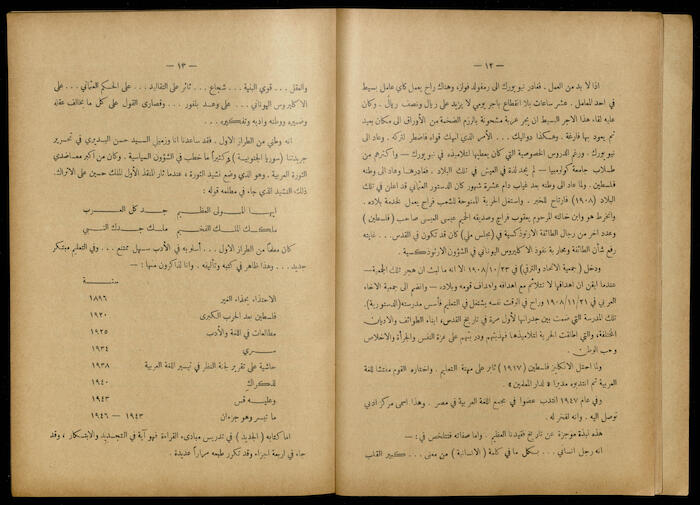 — ١٢ —
اذا لا بد من العمل . فغادر نيويورك الى رمفولد فولز، وهناك راح يعمل كاي عامل بسيط
في احد المعامل . عشر ساعات بلا انقطاع باجر يومي لا يزيد على ريال ونصف ريال . وكان
عليه لقاء هذا الاجر البسيط ان يجر عربة مشحونة بالرزم الضخمة من الأوراق الى مكان بعيد
ثم يعود بها فارغة . وهكذا دواليك ... الأمر الذي انهك قواه فاضطر لتركه . وعاد الى
نيويورك . ورغم الدروس الخصوصية التي كان يعطيها لتلاميذه في نيويورك — واكثرهم من
طلاب جامعة كولومبيا — لم يجد لذة في العيش في تلك البلاد . فغادرها وعاد الى وطنه
فلسطين . ولما عاد الى وطنه بعد غياب دام عشرة شهور كان الدستور العثماني قد اعلن في تلك
البلاد (١٩٠٨) فارتاح للخبر . واستغل الحرية الممنوحة للشعب فراح يعمل لخدمة بلاده .
وانخرط هو وابن خالته المرحوم يعقوب فراج وصديقه الحميم عيسى العيسى صاحب (فلسطين)
وعدد اخر من رجال الطائفة الارثوذكسية في (مجلس ملي) كان قد تكون في القدس ... غايته
رفع شأن الطائفة ومحاربة نفوذ الاكليروس اليوناني في الشؤون الارثوذكسية .
ودخل (جمعية الاتحاد والترقي) في ٢٣/١٠/١٩٠٨ الا انه ما لبث ان هجر تلك الجمعية—
عندما ايقن ان اهدافها لا تتلائم مع اهدافه واهداف قومه وبلاده — وانضم الى جمعية الاخاء
العربي في ٢١/١١/١٩٠٨ وراح في الوقت نفسه يشتغل في التعليم فأسس مدرسته (الدستورية).
تلك المدرسة التي ضمت بين جدرانها لأول مرة في تاريخ القدس، ابناء الطوائف والاديان
المختلفة، والتي اطلقت الحرية لتلاميذها فهذبتهم ودربتهم على عزة النفس والجرأة والاخلاص
وحب الوطن .
ولما احتل الانكليز فلسطين (١٩١٧) ثابر على مهنة التعليم . واختاره القوم مفتشا للغة
العربية ثم انتدبوه مديرا « لدار المعلمين »
وفي عام ١٩٤٧ انتدب عضوا في مجمع اللغة العربية في مصر . وهذا اسمى مركز ادبي
توصل اليه . وانه لفخر له .
هذه نبذة موجزة عن تاريخ فقيدنا العظيم . واما صفاته فتتلخص في : —
انه رجل انساني ... بكل ما في كلمة (الانسانية) من معنى ... كبير القلب
— ١٣ —
والعقل ... قوي البنية ... شجاع ... ثائر على التقاليد ... على الحكم العثماني ... على
الاكليروس اليوناني ... على وعد بلفور ... وقصارى القول على كل ما يخالف عقله
وضميره ووطنه وادبه وتفكيره .
انه وطني من الطراز الاول . فقد ساعدنا انا وزميلي السيد حسن البديري في تحرير
جريدتنا (سوريا الجنوبية) وكثيراً ما خطب في الشؤون السياسية . وكان من اكبر معاضدي
الثورة العربية . وهو الذي وضع نشيد الثورة ، عندما ثار المنقذ الأول الملك حسين على الاتراك.
ذلك النشيد الذي جاء في مطلعه قوله :
ايها المولى العظيم فخر كل العرب
ملكك الملك الفخيم ملك جدك النبي
كان معلماً من الطراز الاول ... أسلوبه في الأدب سهل ممتنع ... وفي التعليم مبتكر
جديد ... وهذا ظاهر في كتبه وتآليفه . وانا لذاكرون منها : —
سنة
الاحتذاء بحذاء الغير ١٨٩٦
فلسطين بعد الحرب الكبرى ١٩٢٠
مطالعات في اللغة والأدب ١٩٢٥
سري ١٩٣٤
حاشية على تقرير لجنة النظر في تيسير اللغة العربية ١٩٣٨
لذكراك ١٩٤٠
وعليه قس ١٩٤٣
ما تيسر وهو جزءان ١٩٤٣ — ١٩٤٦
اما كتابه (الجديد) في تدريس مبادىء القراءة فهو آية في التجديد والابتكار ، وقد
جاء في اربعة اجزاء وقد تكرر طبعه مراراً عديدة .